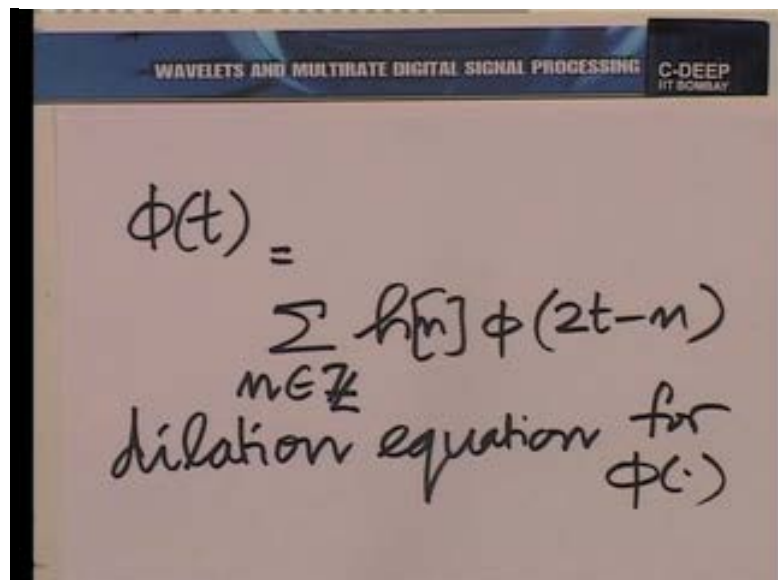 WAVELETS AND MULTIRATE DIGITAL SIGNAL PROCESSING
C-DEEP
IIT BOMBAY
ϕ(t) =
∑ h[n] ϕ(2t-n)
n∈ℤ
dilation equation for
ϕ(·)